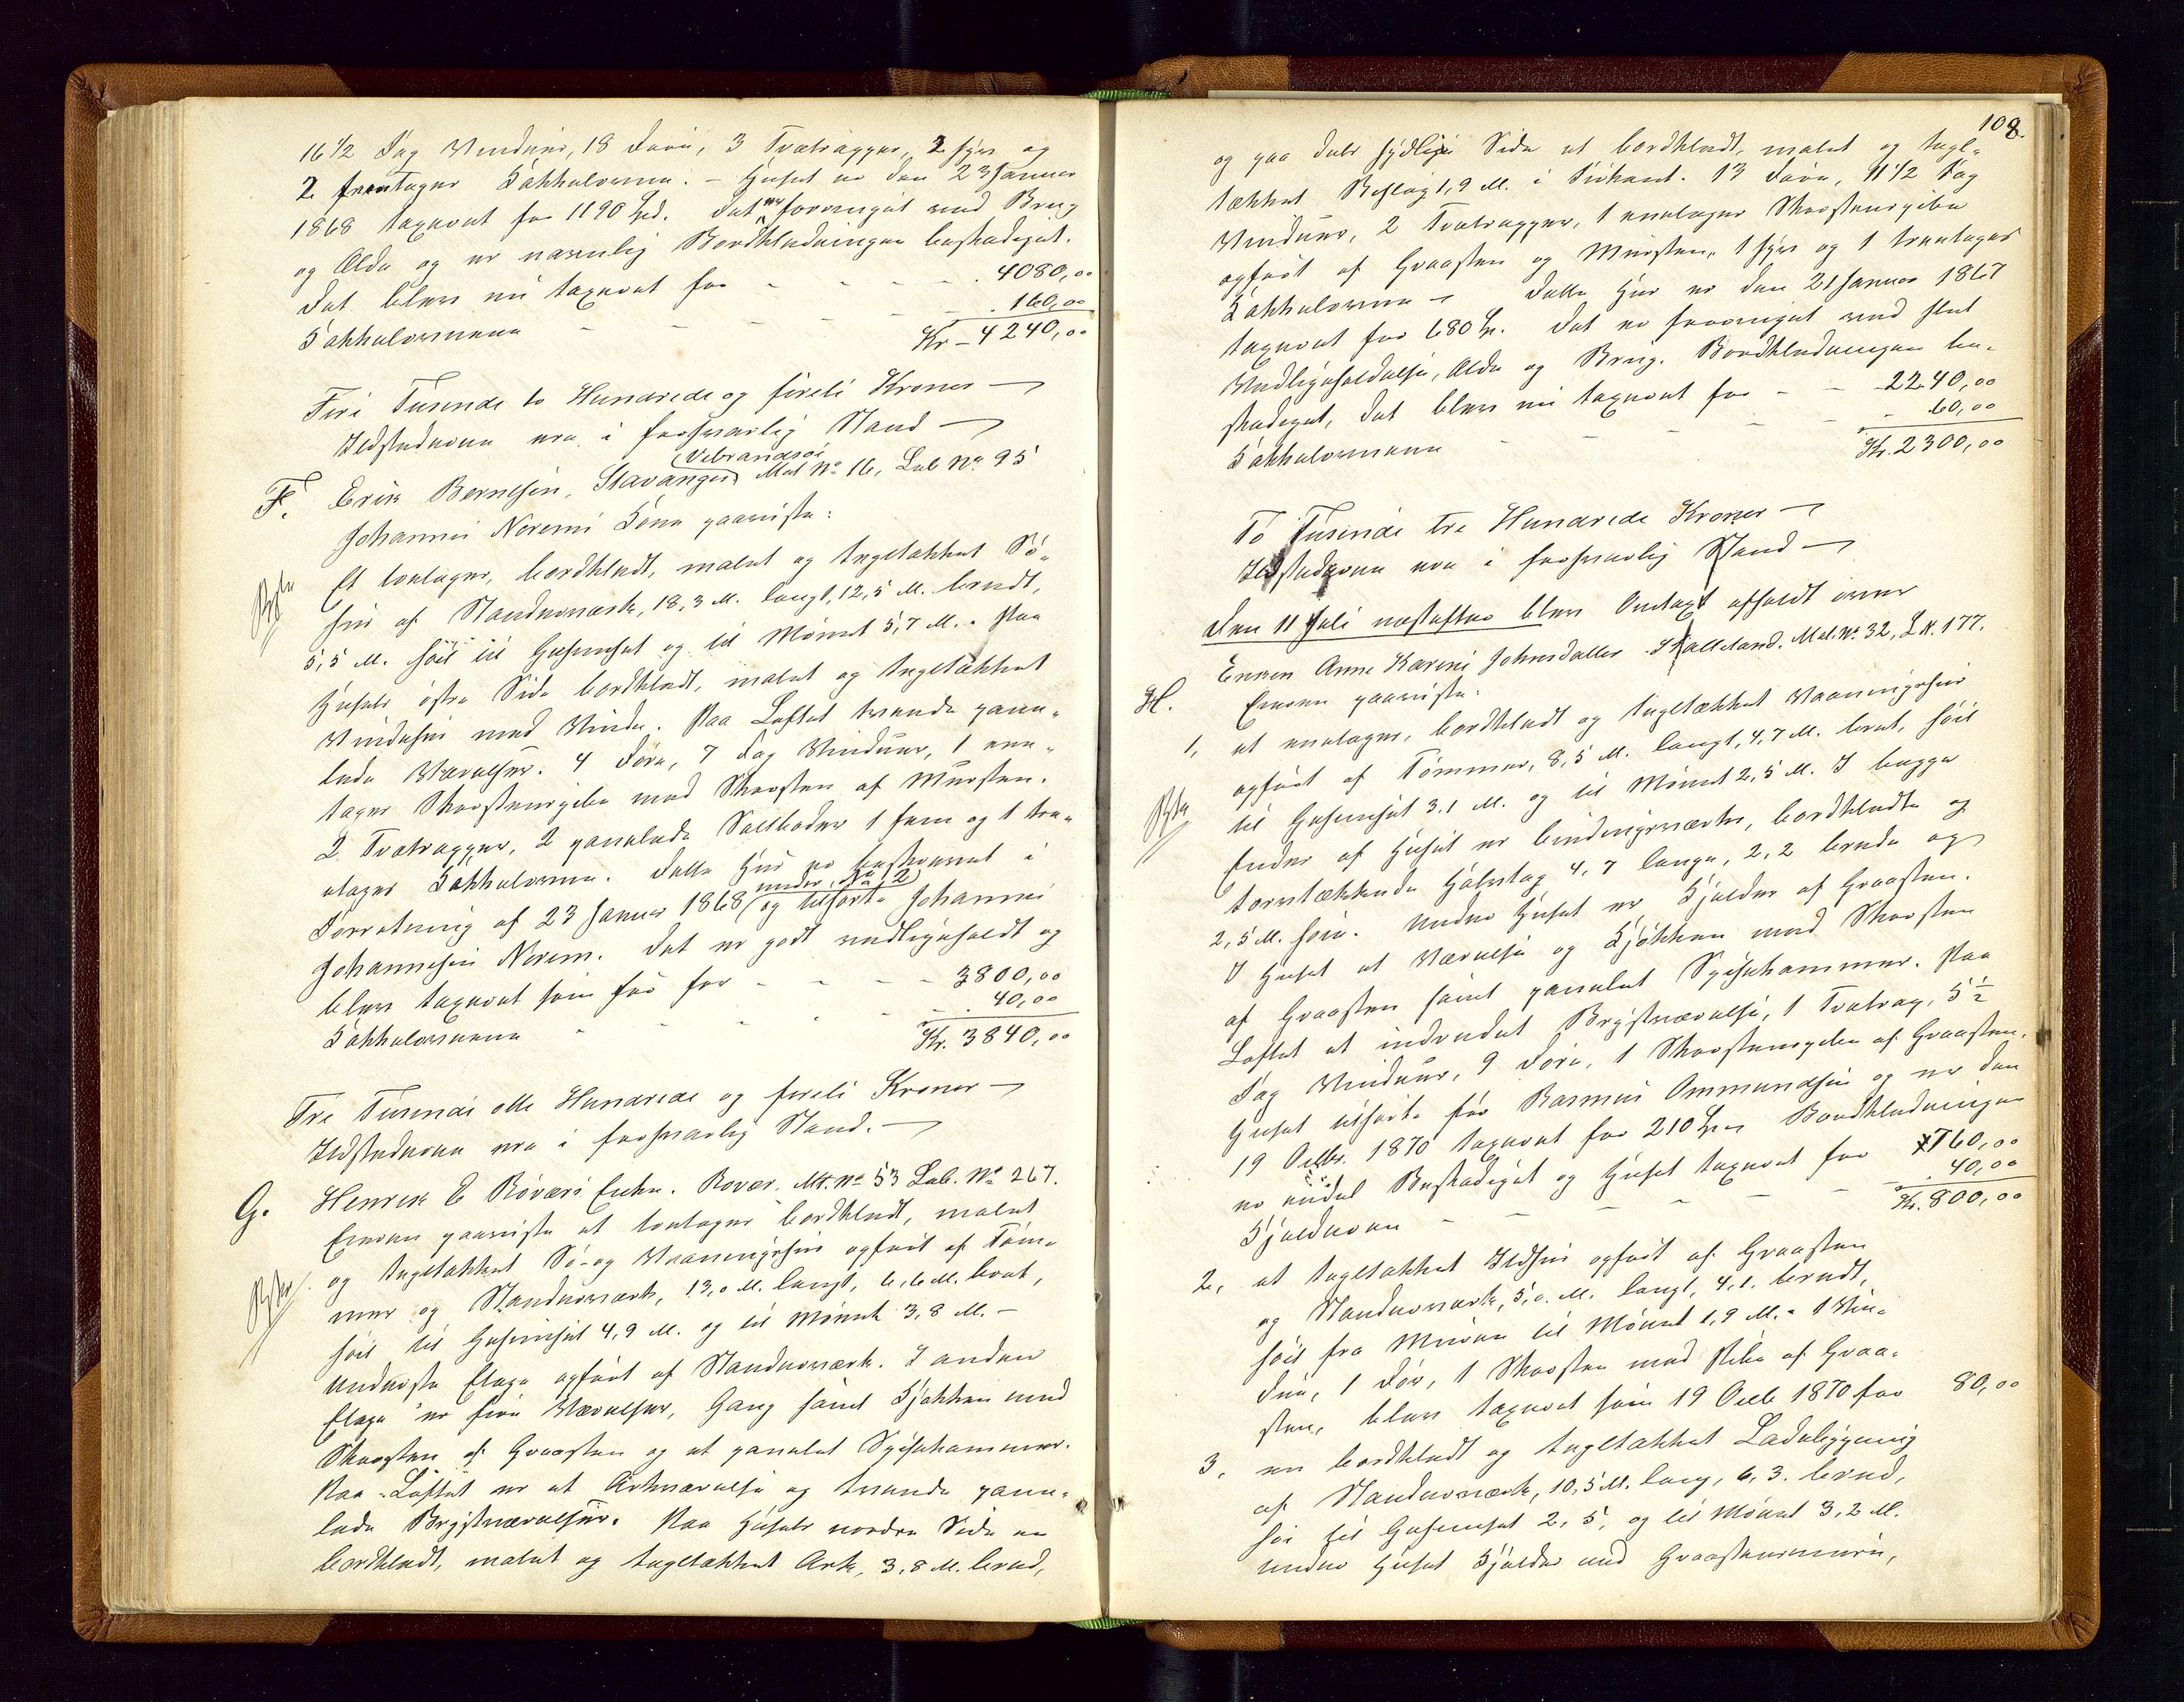 16 1/2 Fag Vinduer, 18 Døre, 3 Tvætrapper, 2 fyr og
2 treetages Kakkelovne. – Huset er den 23 Januar
1868 taxeret for 1190 Spd. Det er forringet ved Brug
og Ælde og er navnlig Bordklædningen beskadiget.
Det blev nu taxeret for - - - - 4080,00
Kakkelovnene - - - - - 160,00
Kr – 4240,00
Fire Tusende to Hundrede og firti Kroner –
Ildstederne ere i forsvarlig Stand –
F. Erik Berntsen, Stavanger, Vibrandsøe Mat No 16, Løb No 95
Johannes Norems Kone paaviste:
Et toetages, bordklædt, malet og tegltækket Sø-
hus af Standværk, 18,3 M. langt, 12,5 M. bredt,
5,5 M. høit til Gesimset og til Mønet 5,7 M. - Paa
Husets østre Side bordklædt, malet og tegltækket
Vindehus med Vinde. Paa Loftet tvende pane-
lede Værelser. 4 Døre, 7 Fag Vinduer, 1 een-
etages Skorstenspibe med Skorsten af Mursten.
2 Tvætrapper, 2 panelede Saltboder 1 fem og 1 tre-
etages Kakkelovne. Dette Hus er beskrevet i
Forretning af 23 Januar 1868 under No 2 og tilhørte Johannes
Johannesen Norem. Det er godt vedligeholdt og
blev taxeret som før for - - - - 3800,00
Kakkelovnene - - - - - 40,00
Kr. 3840,00
Tre Tusende otte Hundrede og firti Kroner –
Ildstederne ere i forsvarlig Stand. –
G. Henrik E Røværs Enke. Rovær. Mt. No 53 Løb. No 267.
Eneren paaviste et toetages bordklædt, malet
og tegltækket Sø- og Vaaningshus opført af Tøm-
mer og Standværk, 13,0 M. langt, 6,6 M. bredt,
høit til Gesimset 4,9 M. og til Mønet 3,8 M. –
Underste Etage opført af Standværk. I anden
Etage er fire Værelser, Gang samt Kjøkken med
Skorsten af Graasten og et panelet Spisekammer.
Paa Loftet er et Arkværelse og tvende pane-
lede Brystværelser. Paa Husets nordre Side en
bordklædt, malet og tegltækket Ark, 3,8 M. bred,
108.
og paa dets sydlige Side et bordklædt, malet og tegl-
tækket Beslag 1,9 M. i Firkant. 13 Døre, 11 1/2 Fag
Vinduer, 2 Tvætrapper, 1 enetages Skorstenspibe
opført af Graasten og Mursten, 1 fyr og 1 treetages
Kakkelovne – Dette Hus er den 21 Januar 1867
taxeret for 680 Sp. Det er forringet ved slet
Vedligeholdelse, Ælde og Brug. Bordklædningen be-
skadiget, det blev nu taxeret for - - 2240,00
Kakkelovnene - - - - 60,00
Kr. 2300,00
To Tusinde tre Hundrede Kroner –
Ildstederne ere i forsvarlig Stand –
Den 11 Juli næstefter blev Omtaxt afholdt over
Enken Anne Karine Johnsdatter Skalleland. Mat. No 32, L N. 177.
H. Eneren paaviste:
1, et enetages, bordklædt og tegltækket Vaaningshus
opført af Tømmer, 8,5 M. langt, 4,7 M. bredt, høit
til Gesimset 3.1 M. og til Mønet 2,5 M. I begge
Ender af Huset er bindingsværks, bordklædte og
torvtækkede Halvtag 4,7 lange, 2,2 brede og
2,5 M. høie. Under Huset er Kjelder af Graasten.
I Huset et Værelse og Kjøkken med Skorsten
af Graasten samt panelet Spisekammer. Paa
Loftet et indredet Brystværelse, 1 Tvætrap, 5 1/2
Fag Vinduer, 9 Døre, 1 Skorstenspibe af Graasten.
Huset tilhørte før Rasmus Ommundsen og er den
19 Octbr. 1870 taxeret for 210 Sp. – Bordklædningen
er endel Beskadiget og Huset taxeret for 760,00
Kjelderen - - - - 40,00
Kr. 800,00
2, et tegltækket Ildhus opført af Graasten
og Standværk, 5,0 M. langt, 4,1. bredt,
høit fra Muren til Mønet 1,9 M. - 1 Vin-
due, 1 Dør, 1 Skorsten med Pibe af Graa-
sten, blev taxeret som 19 Octb 1870 for 80,00
3, en bordklædt og tegltækket Ladebygning
af Standværk, 10,5 M. lang, 6,3. bred,
høi til Gesimset 2,5, og til Mønet 3,2 M.
under Huset Kjelder med Graastensmure,